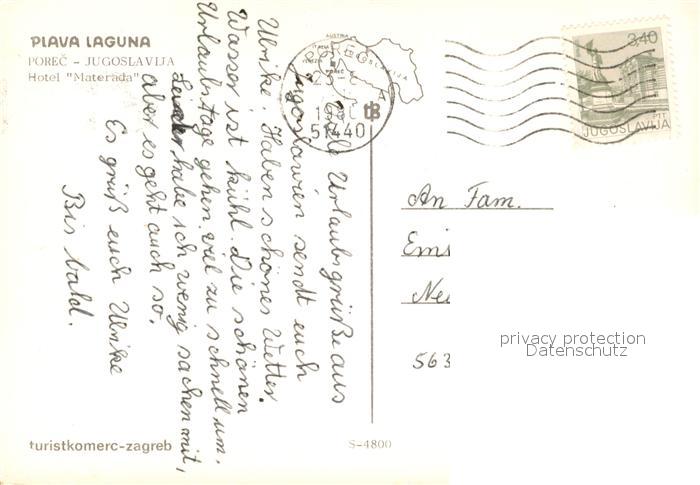 PLAVA LAGUNA
POREČ - JUGOSLAVIJA
Hotel "Materada"
Viele Urlaubsgrüße aus
Jugoslawien sendt euch
Ulrike. Haben schönes Wetter.
Wasser ist kühl. Die schönen
Urlaubstage gehen viel zu schnell um.
Leider habe ich wenig sachen mit,
aber es geht auch so.
Es grüß euch Ulrike
Bis bald.
turistkomerc-zagreb
S-4800
AUSTRIA
ITALIA
POREČ
JUGOSLAVIJA
51440
3,40
PTT
JUGOSLAVIJA
An Fam.
563
privacy protection
Datenschutz